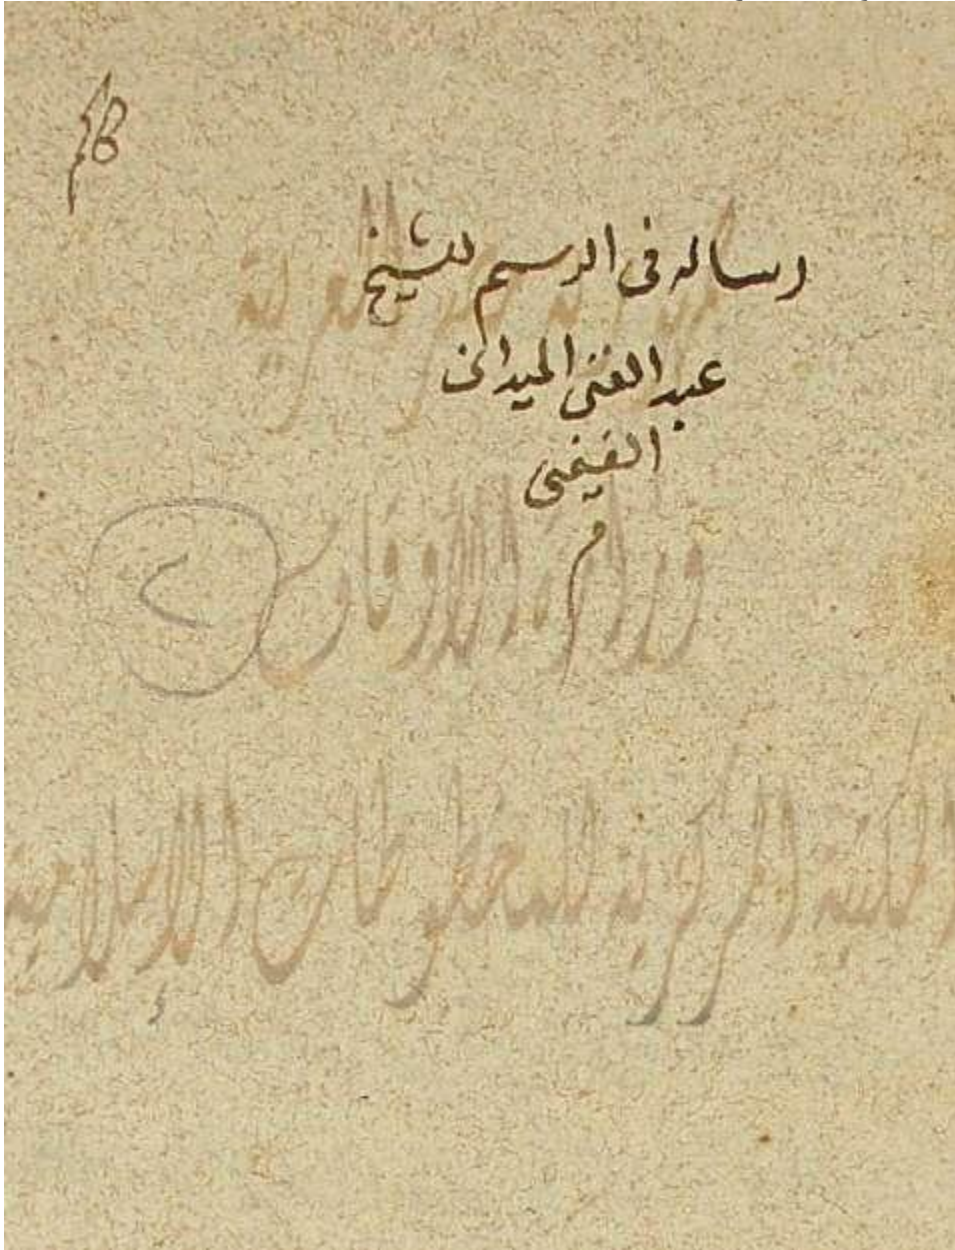 رساله فى الرسم للشيخ
عبد الغنى الميدانى
الغنيمى
م
جمهورية مصر العربية
وزارة الأوقاف
٢
المكتبة المركزية للمخطوطات الإسلامية